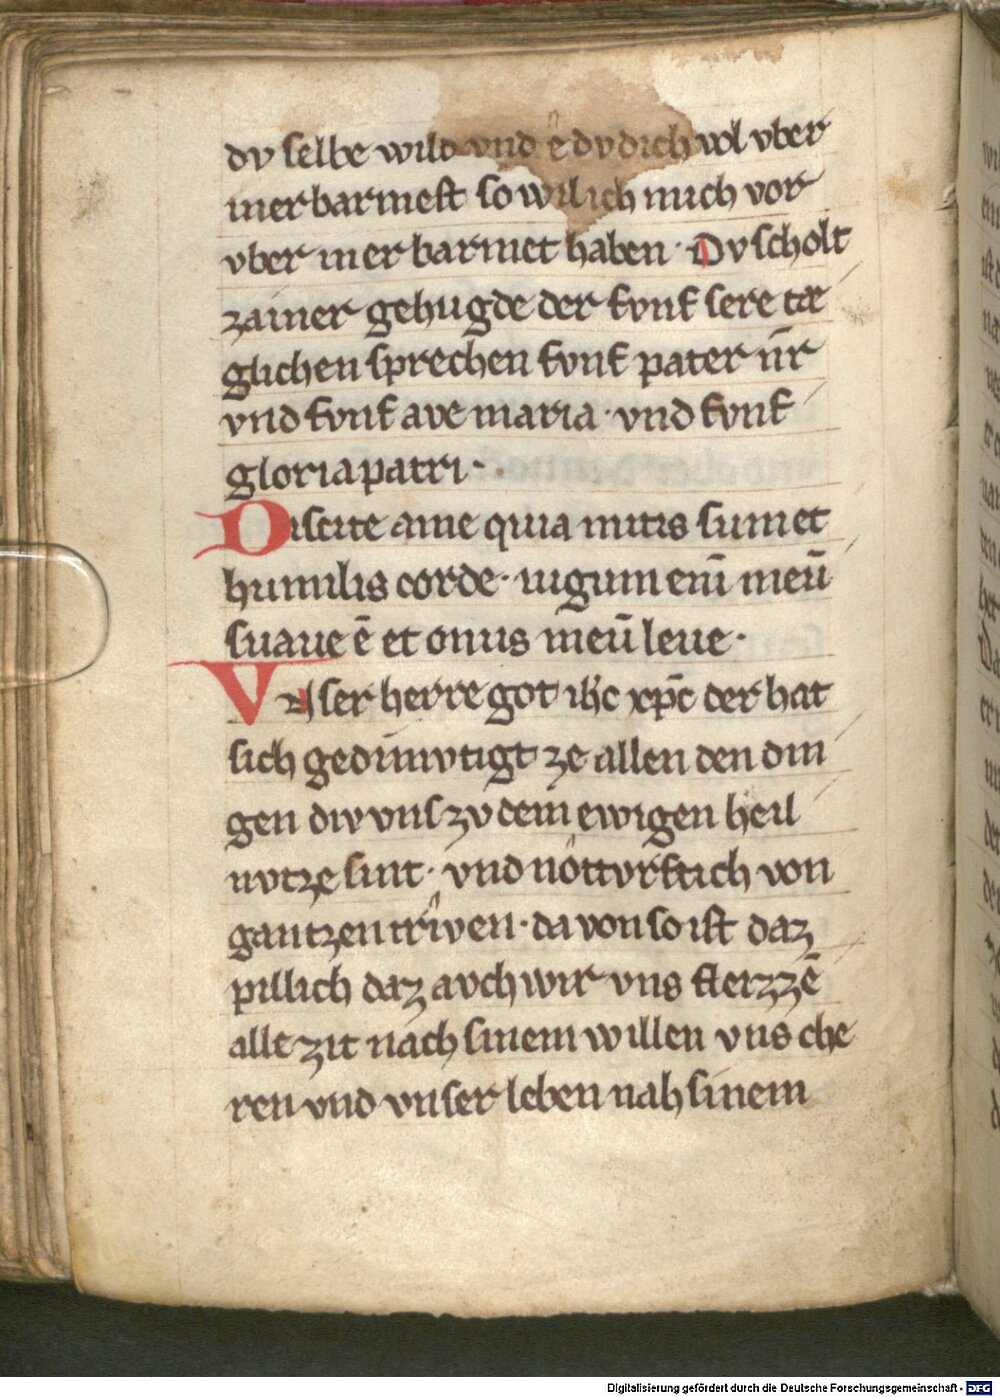 dv selbe wild vnd ê dv dich vol vber
mer barmest so wil ich mich vor
vber mer barmet haben · Dv scholt
zainer gehugde der fvnf sere tæ
glichen sprechen fvnf pater nr̄
vnd fvnf ave maria · vnd fvnf
gloria patri ·
Discite a me quia mitis sum et
humilis corde · iugum eni̅ meu̅
suaue e̅ et onus meu̅ leue ·
Vnser herre got ih̅c xp̅c der hat
sich gedimvtigt ze allen den din
gen div vns zv dem ewigen heil
nvtze sint · vnd nôttvrftich von
gantzen trîwen · da von so ist daz
pillich daz avch wir vns flerzze̅
alle zit nach sinem willen vns che
ren vnd vnser leben nah sinem
Digitalisierung gefördert durch die Deutsche Forschungsgemeinschaft - DFG